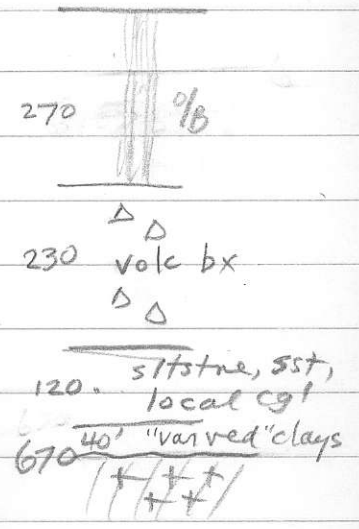 270 O/B
230 volc bx
120. sltstne, sst,
local cgl
40' "varved" clays
670